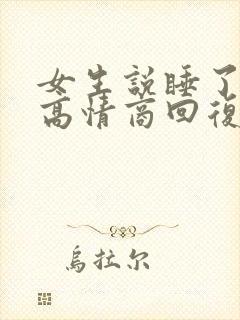 女生説睡了
高情商回復
烏拉尔